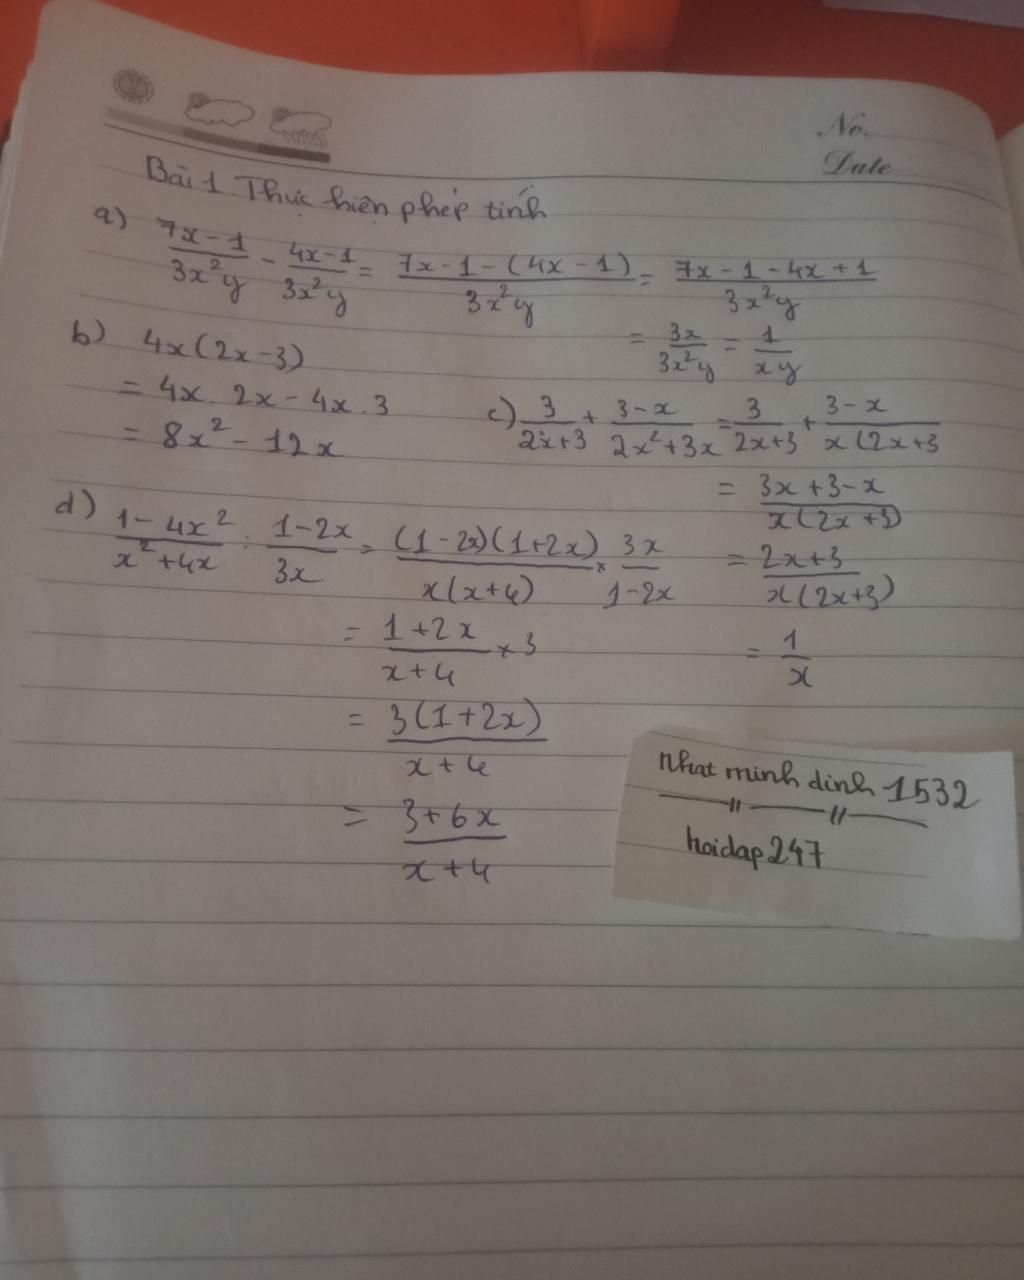 No.
Date
Bài 1. Thực hiện phép tính
a) (7x-1)/(3x²y) - (4x-1)/(3x²y) = (7x-1-(4x-1))/(3x²y) = (7x-1-4x+1)/(3x²y)
= 3x/(3x²y) = 1/(xy)
b) 4x(2x-3)
= 4x. 2x - 4x.3
= 8x² - 12x
c) 3/(2x+3) + (3-x)/(2x²+3x) = 3/(2x+3) + (3-x)/(x(2x+3
= (3x+3-x)/(x(2x+3))
= (2x+3)/(x(2x+3))
= 1/x
d) (1-4x²)/(x²+4x) : (1-2x)/(3x) = ((1-2x)(1+2x))/(x(x+4)) × 3x/(1-2x)
= (1+2x)/(x+4) × 3
= (3(1+2x))/(x+4)
= (3+6x)/(x+4)
nhat minh dinh 1532
hoidap247